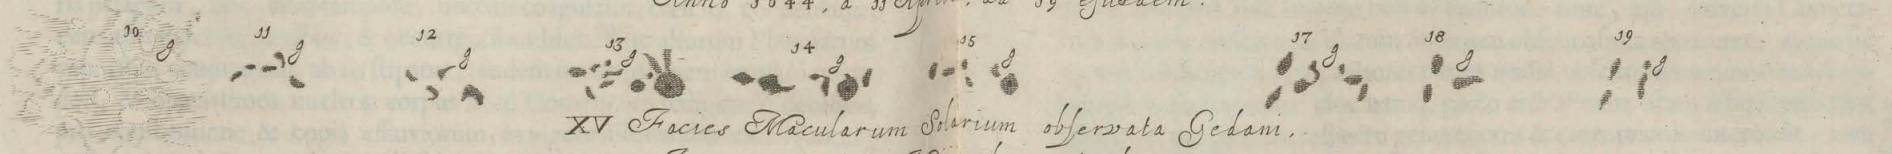 Anno 1644, a 11 April. ad 19 Ejusdem.
10 11 12 13 14 15 17 18 19
g g g g g g g g g
XV Facies Macularum Solarium observata Gedani.